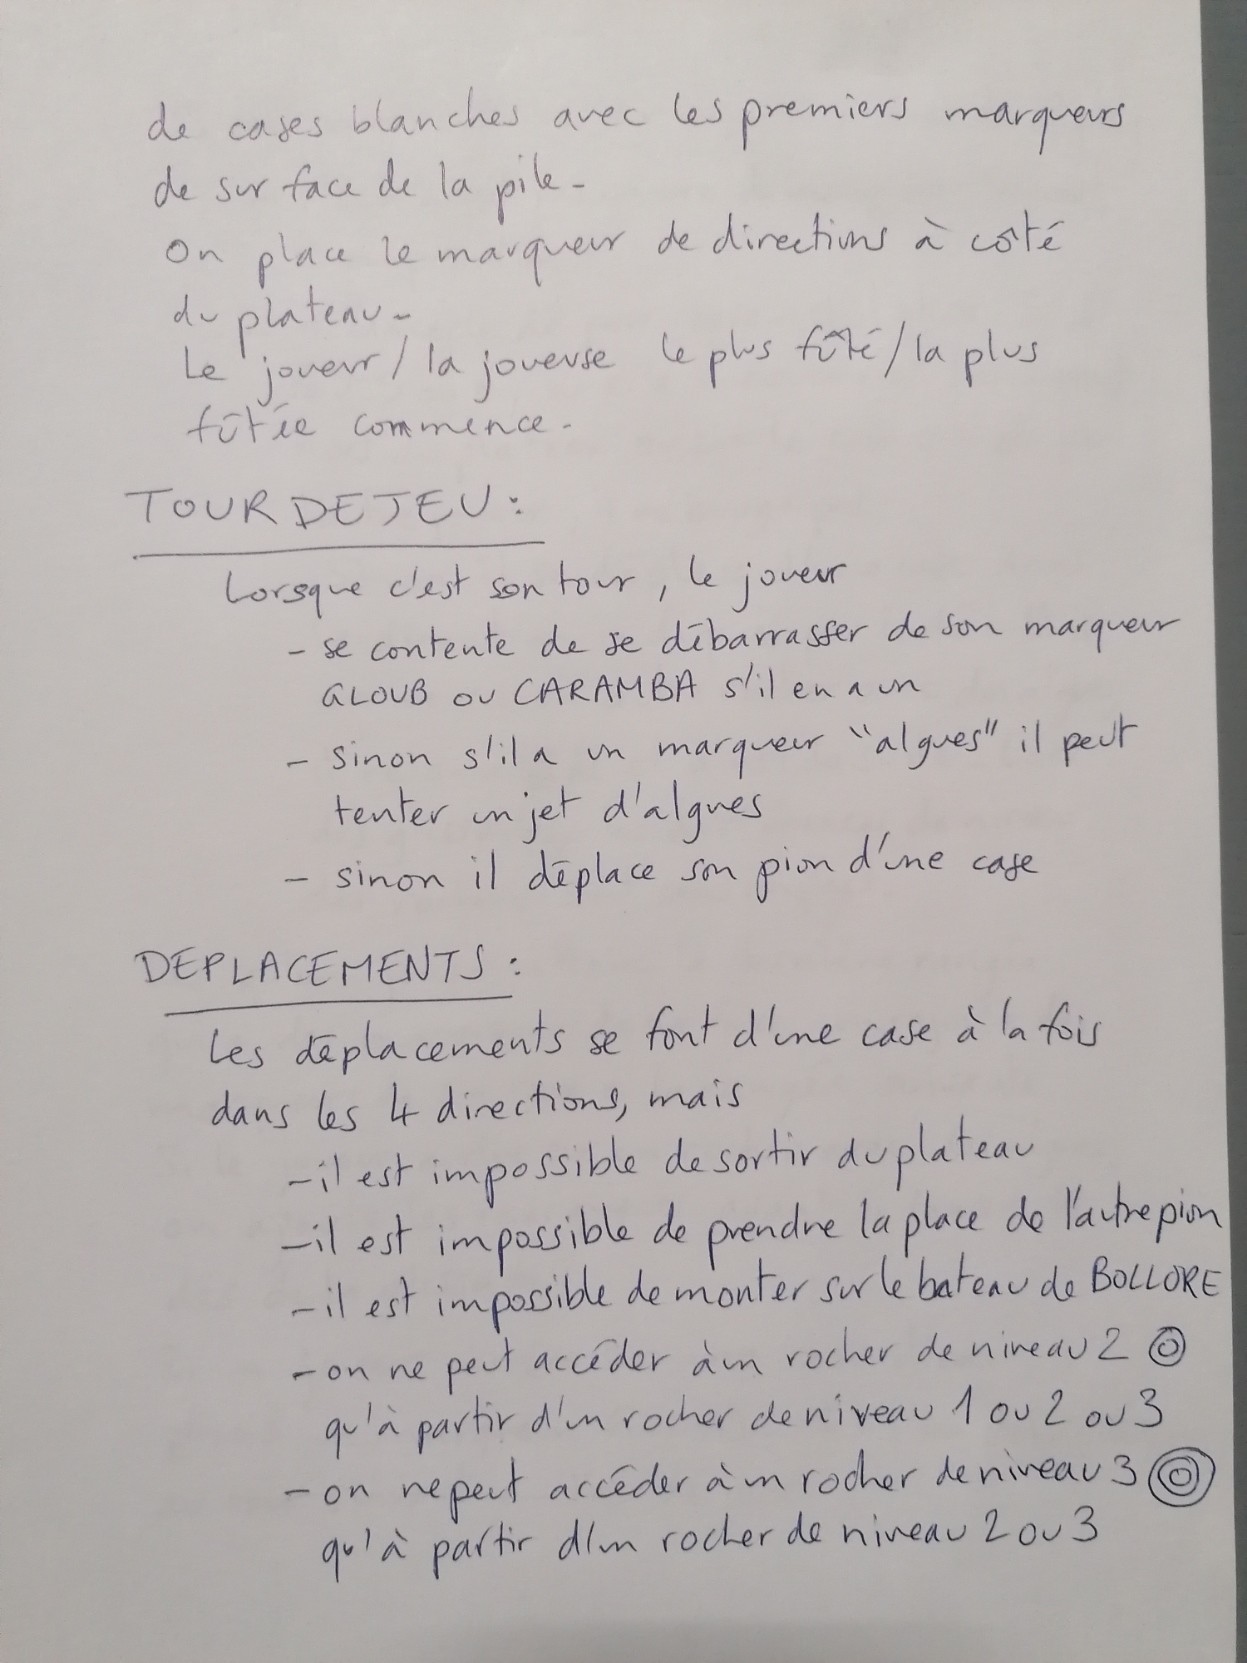 de cases blanches avec les premiers marqueurs
de surface de la pile -
On place le marqueur de directions à côté
du plateau -
Le joueur / la joueuse le plus fûté / la plus
fûtée commence -
TOUR DE JEU :
Lorsque c'est son tour, le joueur
- se contente de se débarrasser de son marqueur
GLOUB ou CARAMBA s'il en a un
- sinon s'il a un marqueur "algues" il peut
tenter un jet d'algues
- sinon il déplace son pion d'une case
DEPLACEMENTS :
Les déplacements se font d'une case à la fois
dans les 4 directions, mais
- il est impossible de sortir du plateau
- il est impossible de prendre la place de l'autre pion
- il est impossible de monter sur le bateau de BOLLORE
- on ne peut accéder à un rocher de niveau 2
qu'à partir d'un rocher de niveau 1 ou 2 ou 3
- on ne peut accéder à un rocher de niveau 3
qu'à partir d'un rocher de niveau 2 ou 3